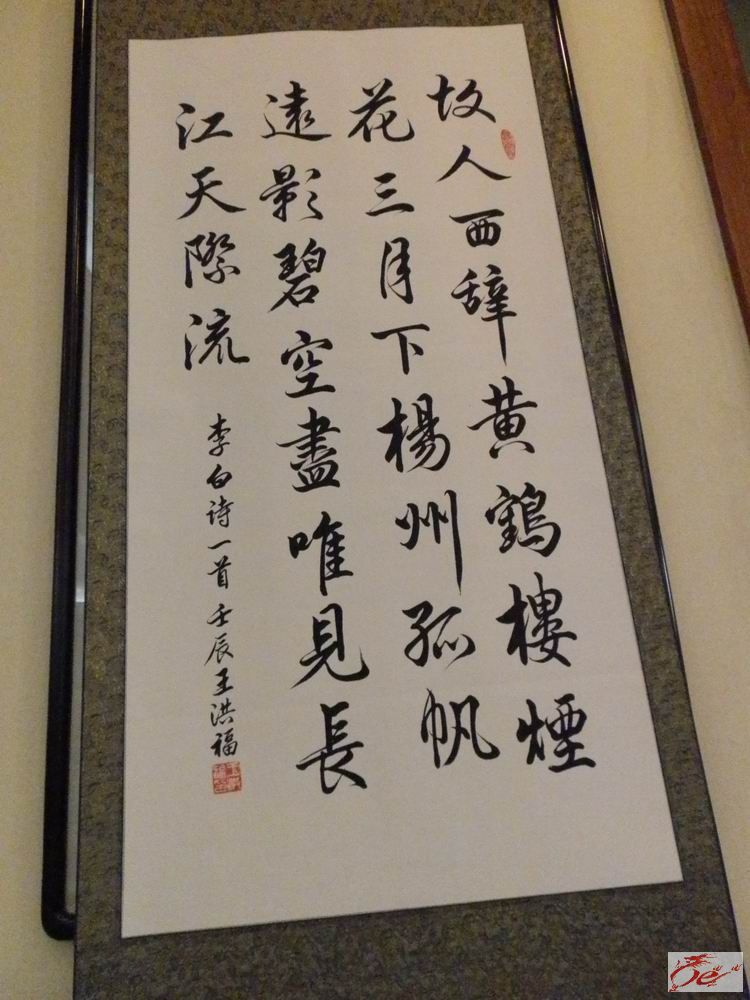 故人西辞黄鶴樓煙
花三月下楊州孤帆
遠影碧空盡唯見長
江天際流
李白诗一首壬辰王洪福